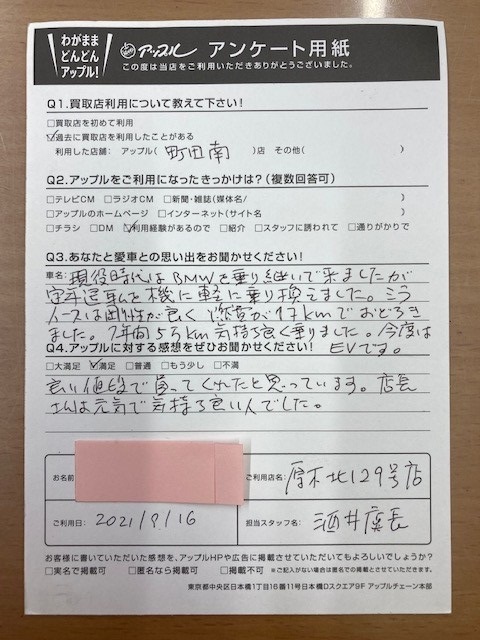 わがまま
どんどん
アップル!
アップル アンケート用紙
この度は当店をご利用いただきありがとうございました。
Q1.買取店利用について教えて下さい!
□買取店を初めて利用
☑過去に買取店を利用したことがある
利用した店舗: アップル( 町田南 )店 その他( )
Q2.アップルをご利用になったきっかけは?(複数回答可)
□テレビCM □ラジオCM □新聞・雑誌(媒体名/ )
□アップルのホームページ □インターネット(サイト名 )
□チラシ □DM ☑利用経験があるので □紹介 □スタッフに誘われて □通りがかりで
Q3.あなたと愛車との思い出をお聞かせください!
車名: 現役時代はBMWを乗り継いで来ましたが
定年退職を機に軽に乗り換えました。ミラ
イースは剛性が良く 燃費が17kmでおどろき
ました。7年間5万km気持ち良く乗りました。今度は
EVです。
Q4.アップルに対する感想をぜひお聞かせください!
□大満足 ☑満足 □普通 □もう少し □不満
良い値段で買ってくれたと思っています。店長
さんは元気で気持ち良い人でした。
お名前
ご利用店名: 厚木北129号店
ご利用日: 2021/9/16
担当スタッフ名: 酒井店長
お客様に書いていただいた感想を、アップルHPや広告に掲載させていただいてもよろしいでしょうか?
□実名で掲載可 □匿名なら掲載可 □掲載不可 ※ご記入がない場合は匿名での掲載とさせていただきます。
東京都中央区日本橋1丁目16番11号日本橋Dスクエア9F アップルチェーン本部